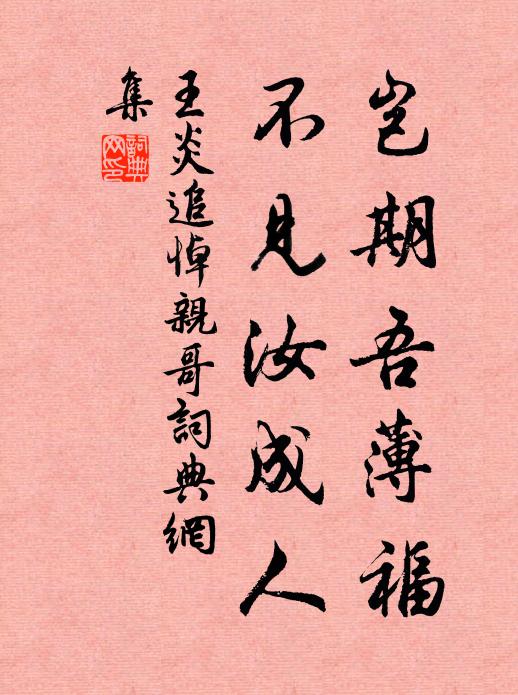 豈期吾薄福
不見汝成人
王炎追悼親哥詞典網
集
詞典網印